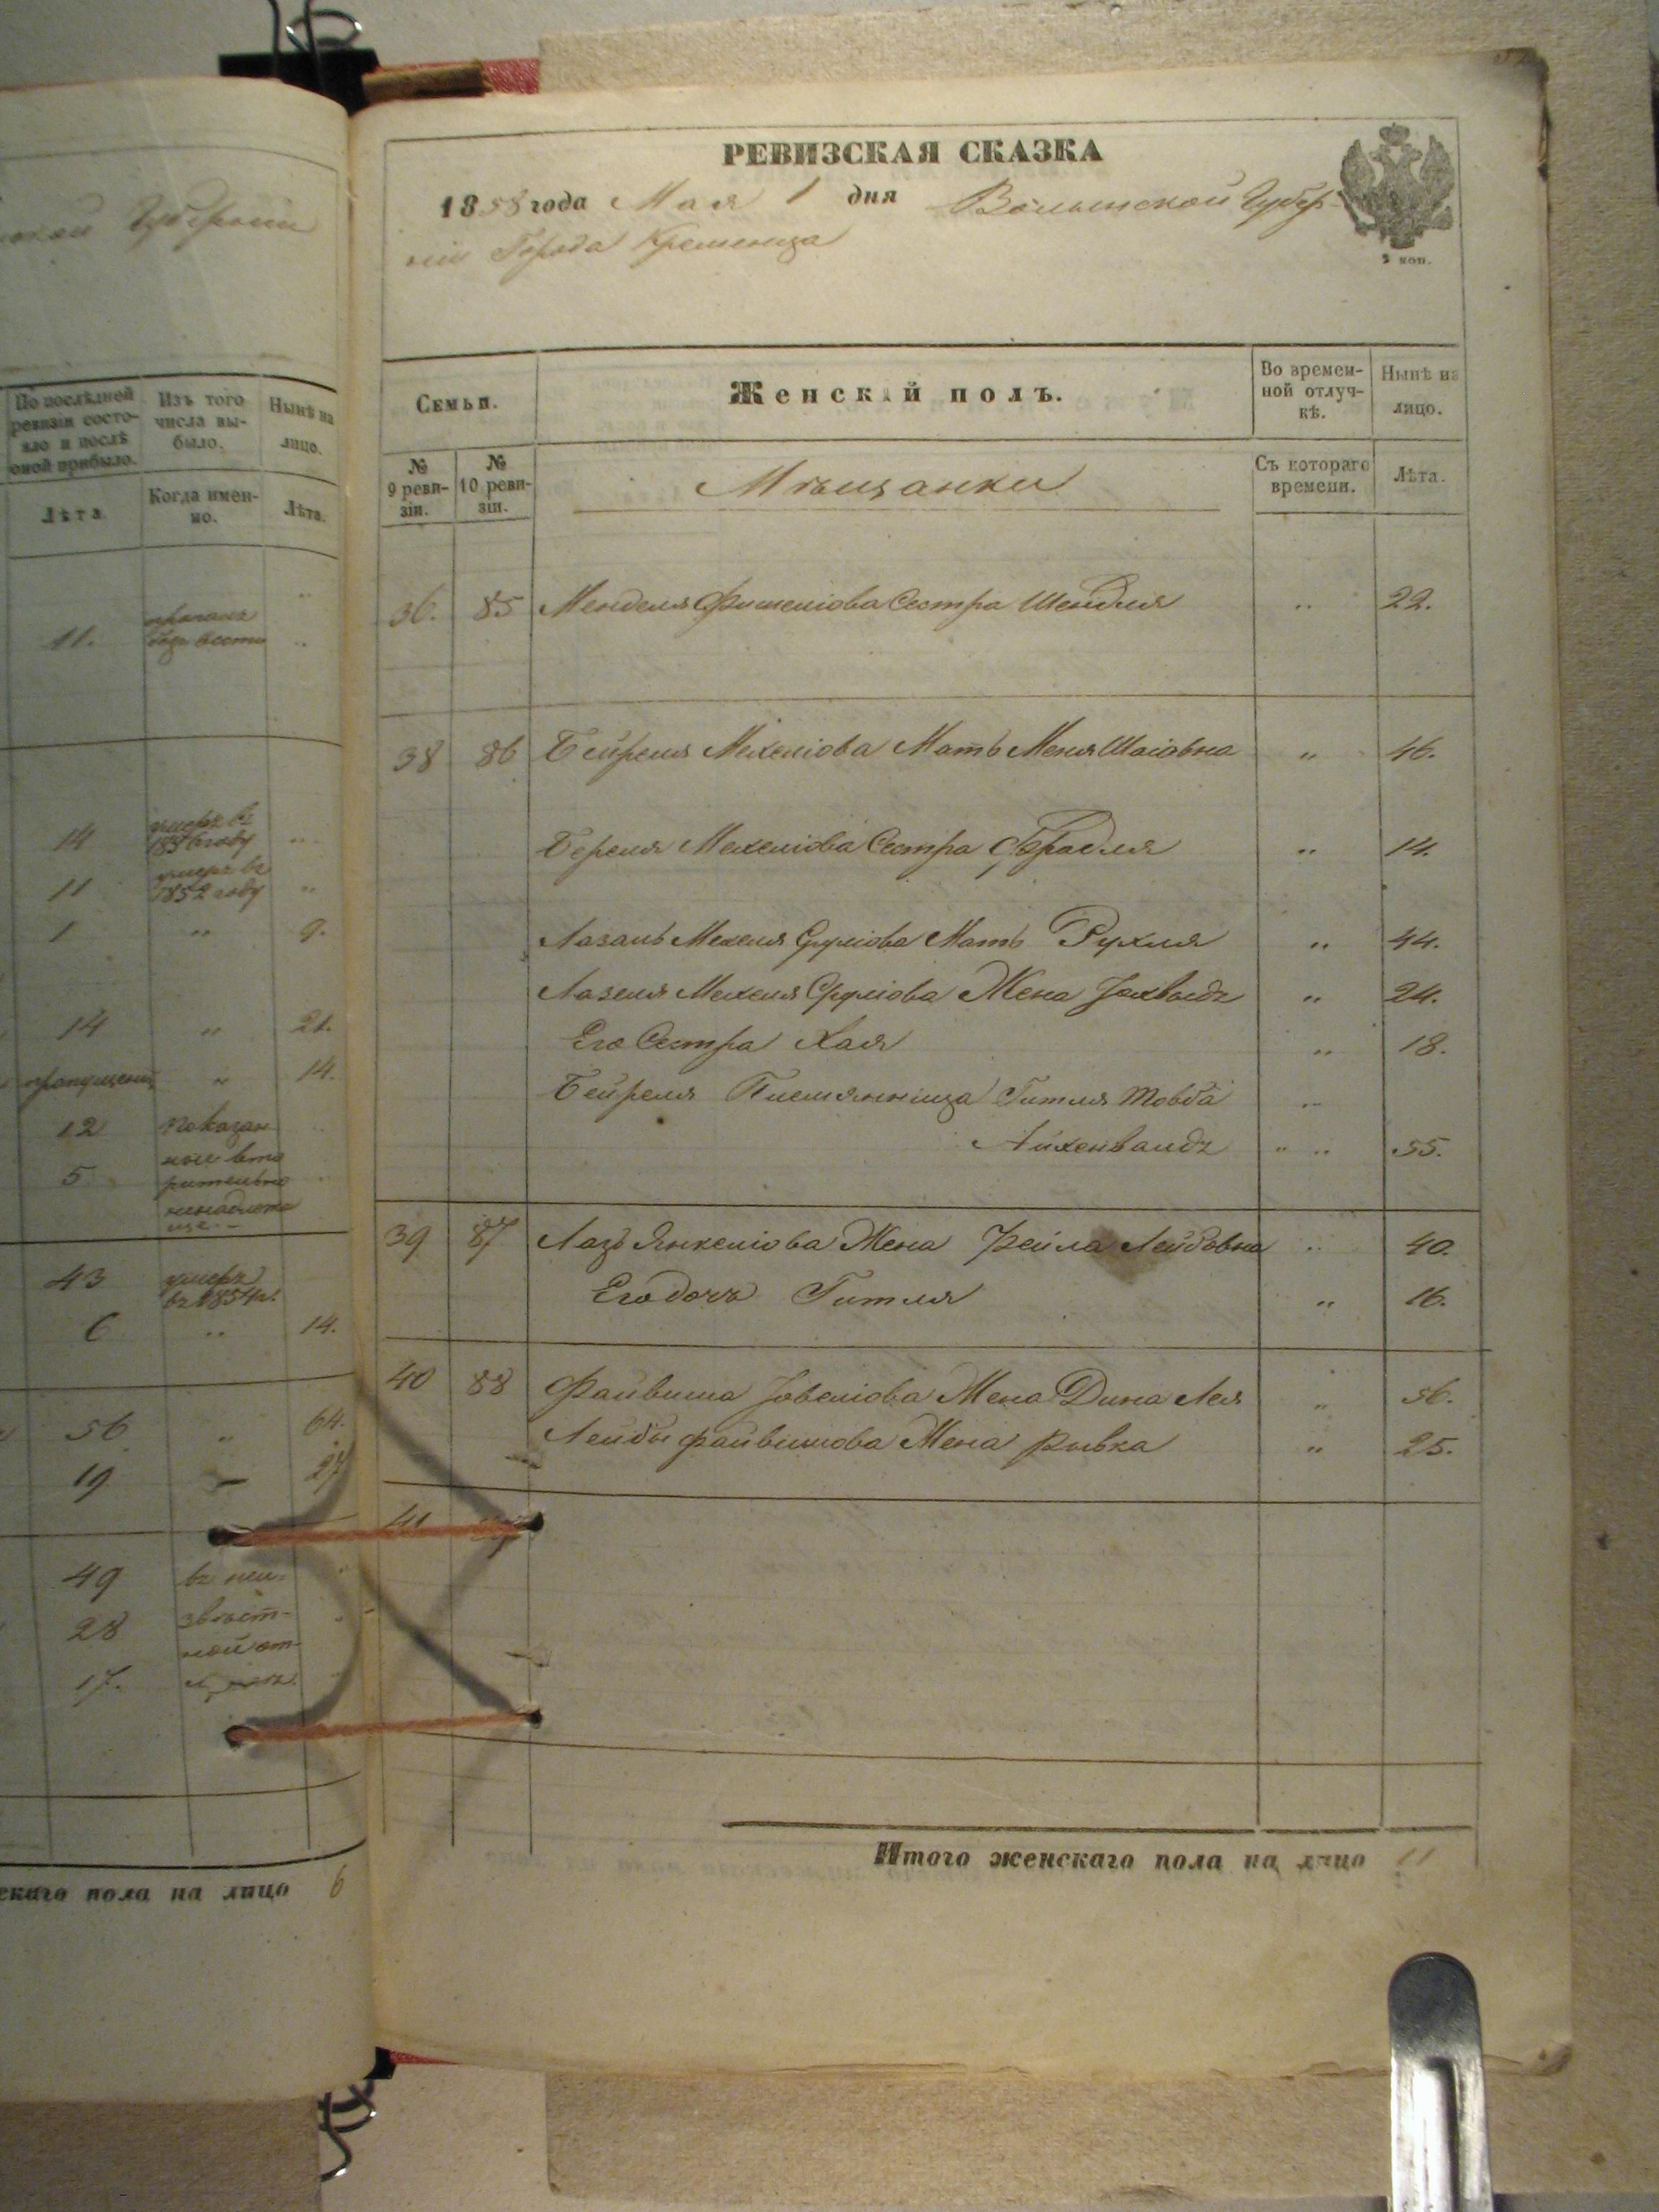 РЕВИЗСКАЯ СКАЗКА
1858 года Мая 1 дня Волынской Губер-
ніи Города Кременца
2 коп.
По послѣдней ревизіи состо-
яло и послѣ
оной прибыло.
Изъ того
числа вы-
было.
Нынѣ на
лицо.
Лѣта
Когда имен-
но.
Лѣта.
11.
безъ вести
14 умеръ въ
1856 году
11 умеръ въ
1852 году
1 9.
14 21.
пропущенъ 14.
12 Показан
5
43 умеръ
въ 1854 г.
6 14.
56 64.
19 27
49 въ неи-
28 звѣст-
ной от-
17.
скаго пола на лицо 6
Семьи.
Женскій полъ.
Во времен-
ной отлуч-
кѣ.
Нынѣ на
лицо.
№
9 реви-
зіи.
№
10 реви-
зіи.
Мѣщанки
Съ котораго
времени.
Лѣта.
36. 85 Менделя Фишеліова Сестра Шендля 22.
38 86 Бейреля Мехеліова Мать Меня Шаіовна 46.
Береля Мехеліова Сестра Фрадля 14.
Лазаль Мехеля Сруліова Мать Рухля 44.
Лазеля Мехеля Сруліова Жена Іохвыдъ 24.
Его Сестра Хая 18.
Бейреля Племянница Гитля Товба
Айхенвалдъ 55.
39 87 Лазъ Янкеліова Жена Рейла Лейбовна 40.
Его дочь Гитля 16.
40 88 Файвиша Іовеліова Жена Дина Лея 56.
Лейбы Файвишова Жена Рывка 25.
41
Итого женскаго пола на лицо 11